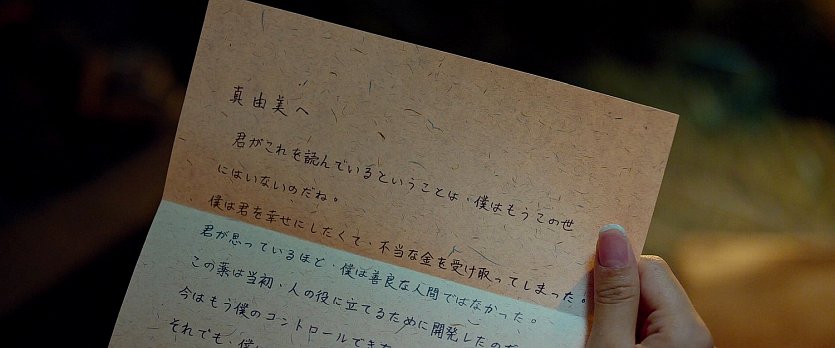 真由美へ
君がこれを読んでいるということは、僕はもうこの世
にはいないのだね。
僕は君を幸せにしたくて、不当な金を受け取ってしまった。
君が思っているほど、僕は善良な人間ではなかった。
この薬は当初、人の役に立てるために開発したのだ
今はもう僕のコントロールでき
それでも、僕